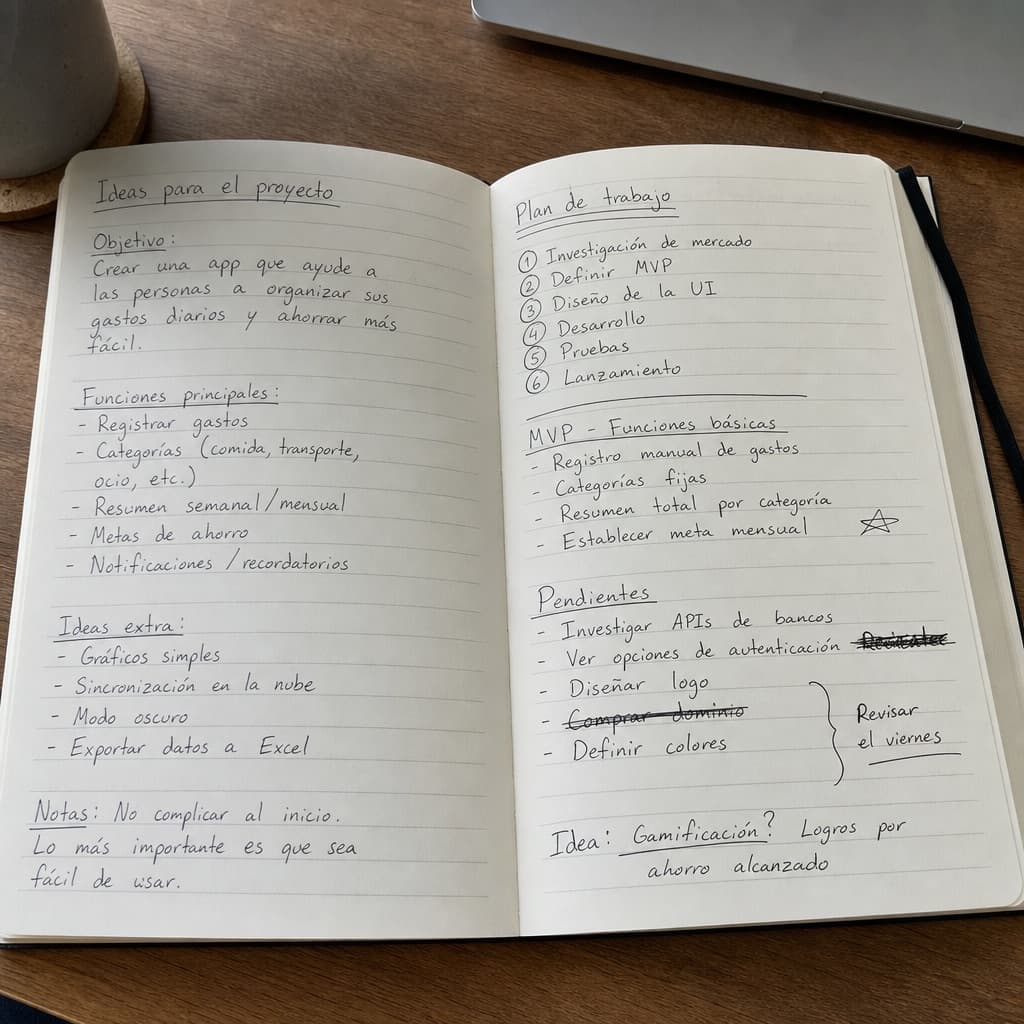 Ideas para el proyecto
Objetivo:
Crear una app que ayude a
las personas a organizar sus
gastos diarios y ahorrar más
fácil.
Funciones principales:
- Registrar gastos
- Categorías (comida, transporte,
ocio, etc.)
- Resumen semanal/mensual
- Metas de ahorro
- Notificaciones/recordatorios
Ideas extra:
- Gráficos simples
- Sincronización en la nube
- Modo oscuro
- Exportar datos a Excel
Notas: No complicar al inicio.
Lo más importante es que sea
fácil de usar.
Plan de trabajo
① Investigación de mercado
② Definir MVP
③ Diseño de la UI
④ Desarrollo
⑤ Pruebas
⑥ Lanzamiento
MVP - Funciones básicas
- Registro manual de gastos
- Categorías fijas
- Resumen total por categoría
- Establecer meta mensual
Pendientes
- Investigar APIs de bancos
- Ver opciones de autenticación
- Diseñar logo
- Comprar dominio
- Definir colores
Revisar
el viernes
Idea: Gamificación? Logros por
ahorro alcanzado